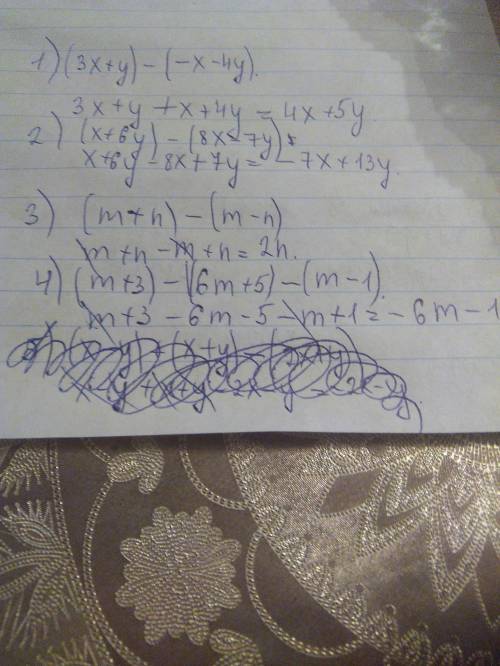 1) (3x+y) - (-x-4y).
3x+y+x+4y = 4x+5y
2) (x+6y) - (8x-7y).
x+6y-8x+7y = -7x+13y.
3) (m+n) - (m-n)
m+n-m+n = 2n.
4) (m+3) - (6m+5) - (m-1).
m+3-6m-5-m+1 = -6m-1